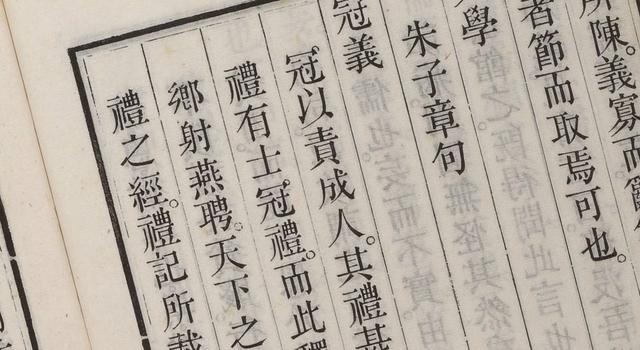 所陳義寡而
者節而取焉可也
學
朱子章句
冠義
冠以責成人其禮甚
禮有士冠禮而此釋
鄉射燕聘天下之
禮之經禮記所載